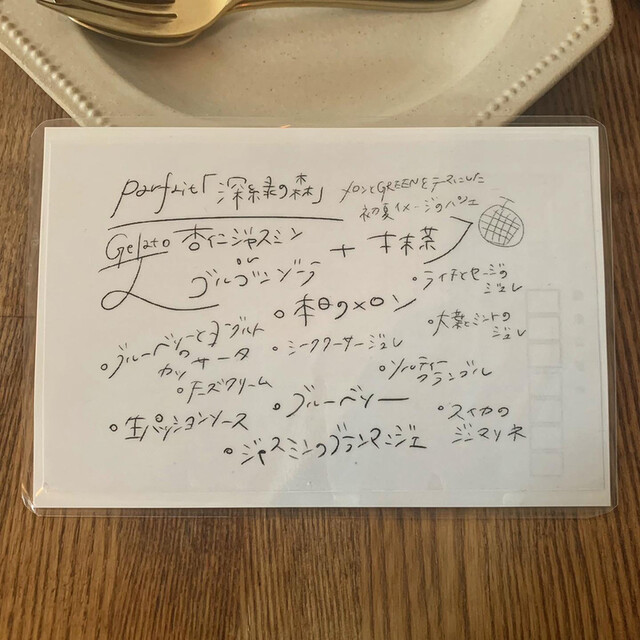 parfait「深緑の森」
メロンとGREENをテーマにした
初夏イメージのパフェ
Gelato 杏仁ジャスミン
or
ゴルゴンゾラ
+ 抹茶
・ライチとセージの
ジュレ
・本日のメロン
・大葉とミントの
ジュレ
・ブルーベリーとヨーグルト
の
カッサータ
・シークワーサージュレ
・ソルティー
クランブル
・チーズクリーム
・ブルーベリー
・スイカの
ジンマリネ
・生パッションソース
・ジャスミンのブランマンジェ